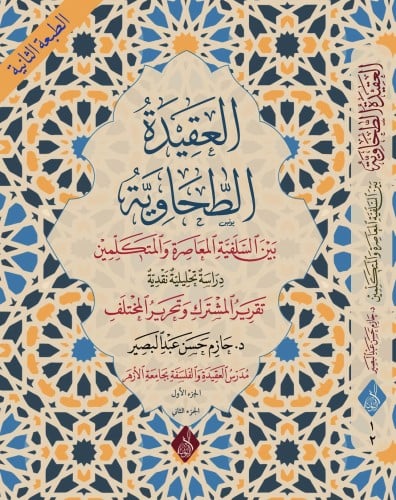 الطبعة الثانية
العقيدة
الطحاوية
بين السلفية المعاصرة والمتكلمين
دراسة تحليلية نقدية
تقرير المشترك وتحرير المختلف
د. حازم حسن عبدالبصير
مدرس العقيدة والفلسفة بجامعة الأزهر
الجزء الأول
الجزء الثاني
العقيدة الطحاوية
بين السلفية المعاصرة والمتكلمين
د. حازم حسن عبدالبصير